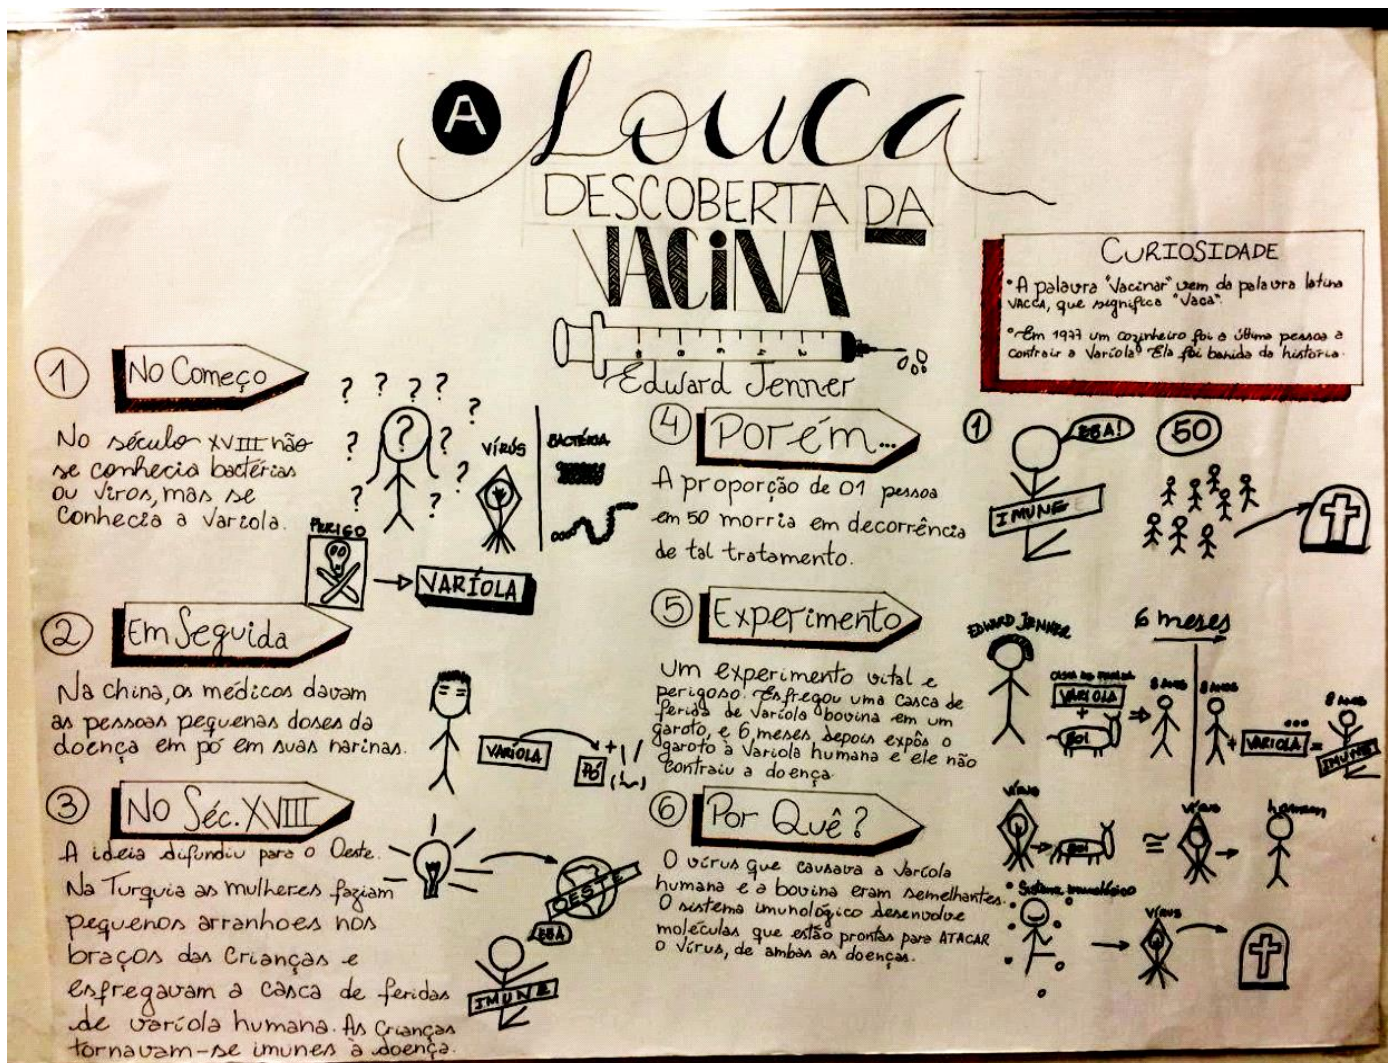 A Louca
DESCOBERTA DA
VACINA
8 6 4 2
Edward Jenner
CURIOSIDADE
• A palavra "Vacinar" vem da palavra latina
VACCA, que significa "Vaca".
• Em 1977 um cozinheiro foi a última pessoa a
contrair a Varíola. Ela foi banida da história.
1 No Começo
No século XVIII não
se conhecia bactérias
ou viros, mas se
conhecia a varíola.
? ? ? ?
? ? ?
? ?
? ?
VÍRUS
BACTÉRIA
PERIGO
VARÍOLA
2 Em Seguida
Na china, os médicos davam
as pessoas pequenas doses da
doença em pó em suas narinas.
VARÍOLA
PÓ
3 No Séc. XVIII
A ideia difundiu para o Oeste.
Na Turquia as mulheres faziam
pequenos arranhoes nos
braços das Crianças e
esfregavam a casca de feridas
de varíola humana. As Crianças
tornavam-se imunes à doença.
OESTE
EBA
IMUNE
4 Porém...
A proporção de 01 pessoa
em 50 morria em decorrência
de tal tratamento.
1
EBA!
50
IMUNE
5 Experimento
Um experimento vital e
perigoso. Esfregou uma casca de
ferida de varíola bovina em um
garoto, e 6 meses, depois expôs o
garoto à varíola humana e ele não
contraiu a doença.
EDWARD JENNER
6 meses
VARIOLA
+
BOI
8 ANOS
8 ANOS
+ VARIOLA =
8 ANOS
IMUNE
6 Por Quê?
O vírus que causava a varíola
humana e a bovina eram semelhantes.
O sistema imunológico desenvolve
moléculas que estão prontas para ATACAR
o vírus, de ambas as doenças.
VÍRUS
BOI
≅
VÍRUS
homem
Sistema imunológico
VÍRUS